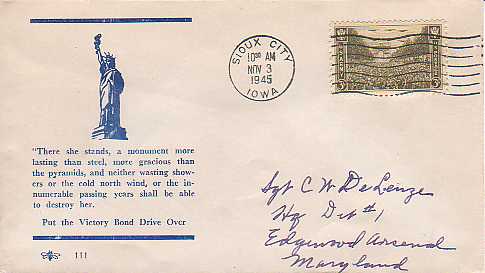 SIOUX CITY
10 00 AM
NOV 3
1945
IOWA
"There she stands, a monument more
lasting than steel, more gracious than
the pyramids, and neither wasting show-
ers or the cold north wind, or the in-
numerable passing years shall be able
to destroy her.
Put the Victory Bond Drive Over
111
Sgt C W DeLenze
Hq Det #1
Edgewood Arsenal
Maryland